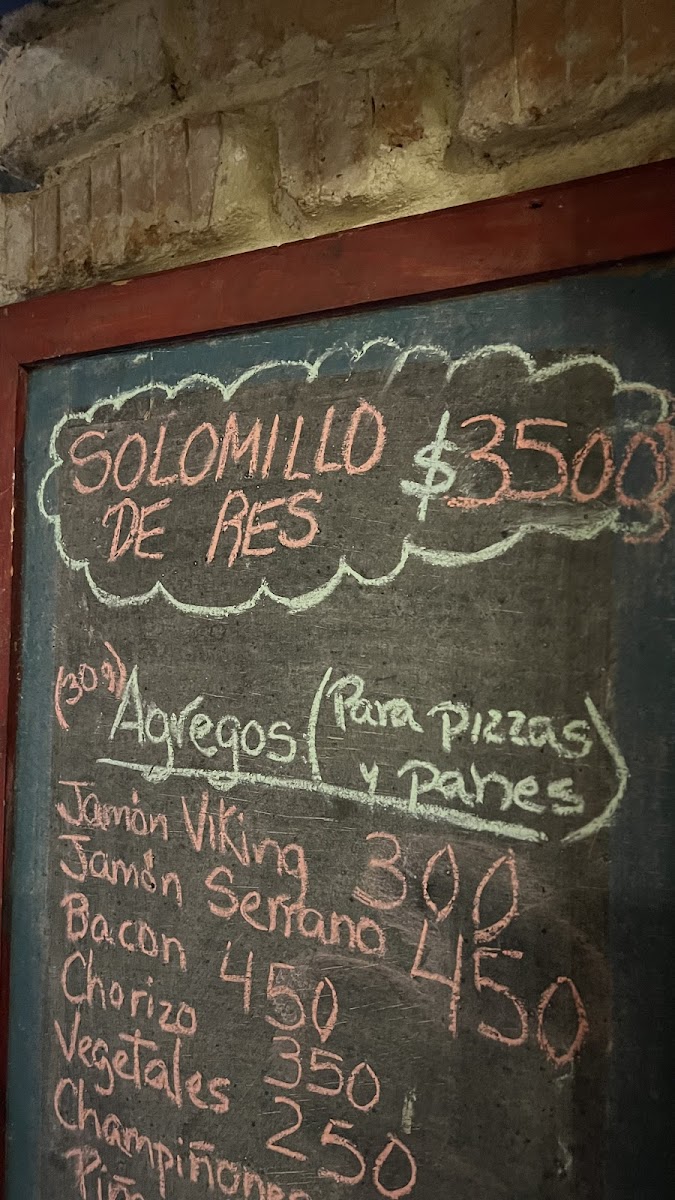 SOLOMILLO $3500
DE RES
(30g)
Agregos (Para pizzas
y panes)
Jamón Viking 300
Jamón Serrano 450
Bacon 450
Chorizo 350
Vegetales 250
Champiñones